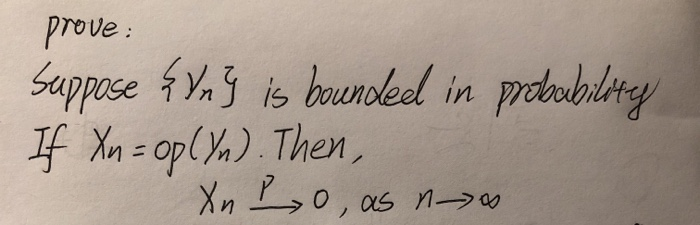 prove:
Suppose {Yn} is bounded in probability
If Xn = op(Yn). Then,
Xn P→ 0, as n→∞